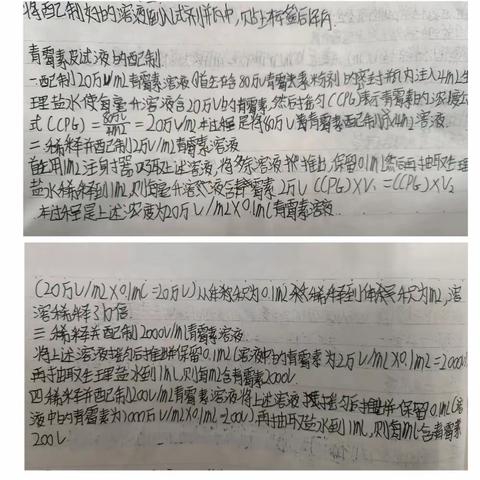 将配制好的溶液倒入试剂瓶中,贴上标签后备用.
青霉素皮试液的配制
一.配制20万U/mL青霉素溶液(首先在含80万U青霉素粉剂的密封瓶内注入4mL生
理盐水使每毫升溶液含20万U的青霉素,然后摇匀C(PG)表示青霉素的浓度公
式C(PG)=80万U/4mL=20万U/mL本过程是将80万U青霉素配制成4mL溶液
二.稀释并配制2万U/mL青霉素溶液
首先用1mL注射器吸取上述溶液,将多余溶液推掉,保留0.1mL然后再抽取生理
盐水稀释到1mL,则每毫升溶液含青霉素2万U C(PG)×V₁=C(PG)×V₂
本过程是上述浓度为20万U/mL×0.1mL青霉素溶液
(20万U/mL×0.1mL=20万U)从体积为0.1mL稀释到体积为1mL,溶
溶稀释10倍.
三.稀释并配制2000U/mL青霉素溶液
将上述溶液摇匀后推掉保留0.1mL(溶液中的青霉素为2万U/mL×0.1mL=2000U
再抽取生理盐水到1mL,则每mL含青霉素2000U.
四.稀释并配制200U/mL青霉素溶液将上述溶液摇匀后推掉并保留0.1mL(溶
液中的青霉素为 U/mL×0.1mL=200U),再抽取盐水到1mL,则每mL含青霉素
200U